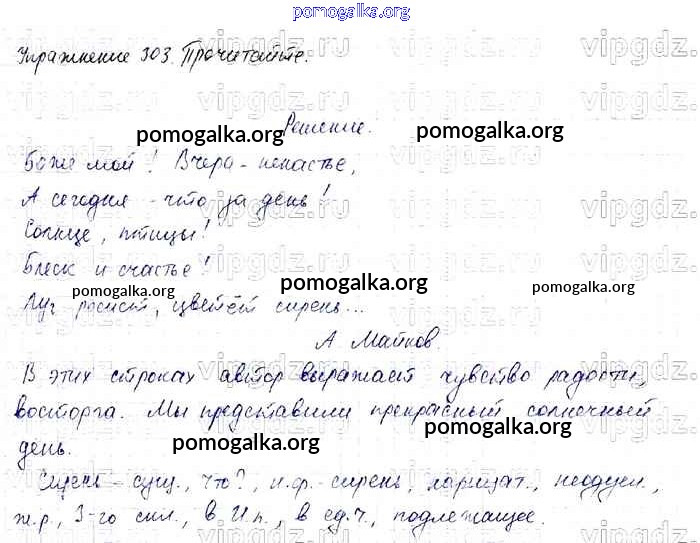 pomogalka.org
Упражнение 303. Прочитайте.
vipgdz.ru vipgdz.ru vipgdz
Решение.
pomogalka.org pomogalka.org
Боже мой! Вчера - ненастье,
А сегодня - что за день!
Солнце, птицы!
Блеск и счастье!
pomogalka.org pomogalka.org pomogalka.org
Луг росист, цветёт сирень...
А. Майков.
В этих строках автор выражает чувство радости,
восторга. Мы представили прекрасный солнечный
день.
pomogalka.org pomogalka.org
Сирень - сущ., что?, н.ф. - сирень, нарицат., неодуш.,
ж.р., 3-го скл., в И.п., в ед.ч., подлежащее.